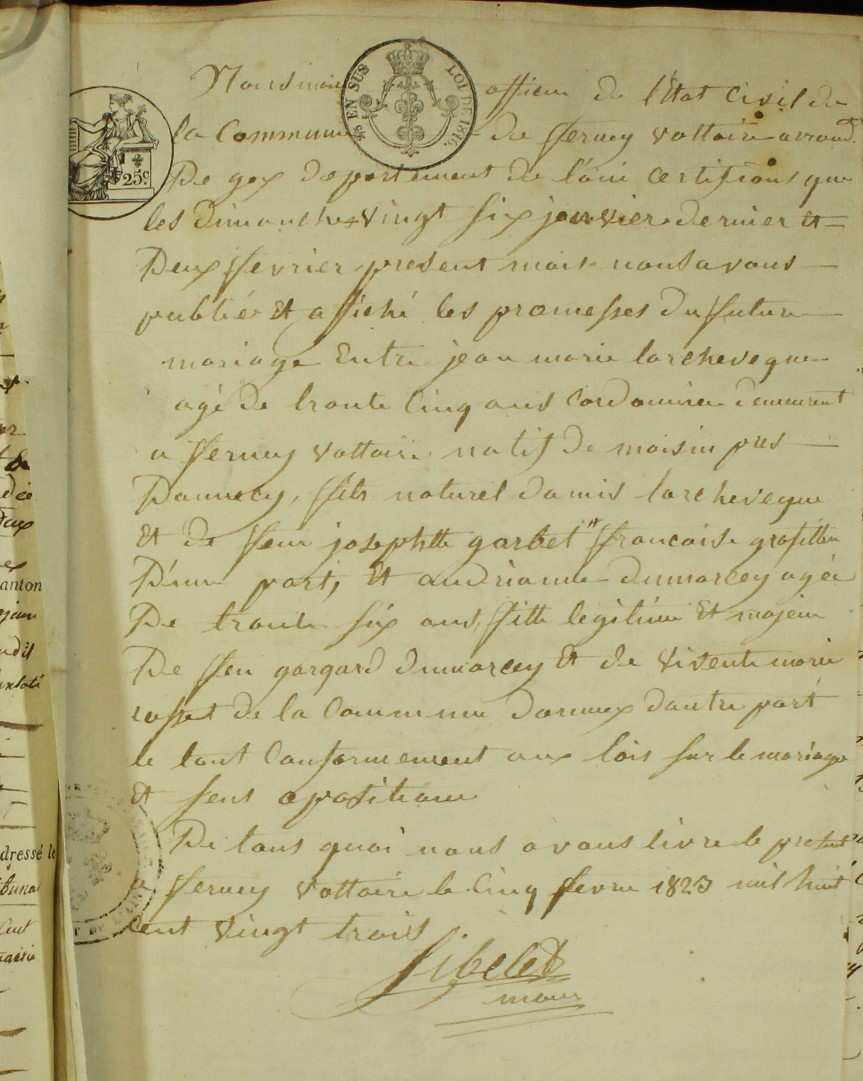 Nous maire officier de l'Etat Civil de
la Commune de fferney Voltaire arrond.t
De gex Departement de l'ain certifions que
les Dimanche vingt six janvier dernier et
Deux ffevrier present mois nous avons
publié et affiché les promesses du ffutur
mariage Entre jean marie larcheveque
agé de trante Cinq ans Cordonnier demeurant
a fferney Voltaire natif de
Dannecy, ffils naturel larcheveque
et de ffeue josephtte garbet ffrancoise
D'une part, Et andrianne dumarcey agée
De trante six ans ffille legitime et majeure
De ffeu gaspard dumarcey et de Visente marie
rosset de la Commune dornex dautre part
le tout Conformement aux lois sur le mariage
Et sens opositions
De tous quoi nous avons livré le present
a fferney Voltaire le Cinq ffevrier 1823 mil huit
Cent vingt trois
maire
EN SUS LOI DE 1816.
25c.
anton
dressé le